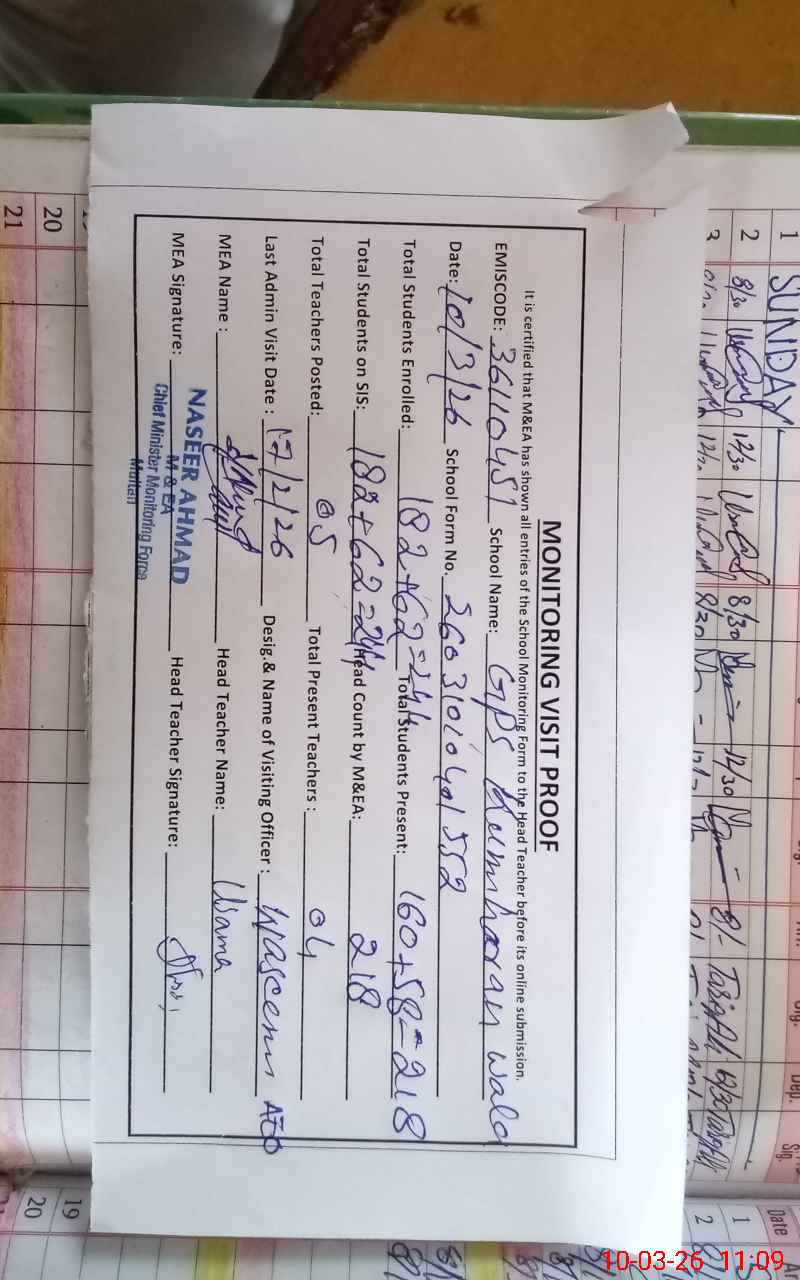 MONITORING VISIT PROOF
It is certified that M&EA has shown all entries of the School Monitoring Form to the Head Teacher before its online submission.
EMISCODE: 36110451 School Name: GPS Kumharan wala
Date: 10/3/26 School Form No. 2603101041552
Total Students Enrolled: 182+62=244 Total Students Present: 160+58=218
Total Students on SIS: 182+62=244 Head Count by M&EA: 218
Total Teachers Posted: 05 Total Present Teachers : 04
Last Admin Visit Date : 17/2/26 Desig.& Name of Visiting Officer : Waseem AEO
MEA Name : Head Teacher Name: Usama
MEA Signature: Head Teacher Signature:
NASEER AHMAD
M & EA
Chief Minister Monitoring Force
Multan
1 SUNDAY
2 8/30 12/30 8/30 12/30 8/- Tariq Ali 12/30 Tariq Ali
3
20
21
Sig. Dep. Sig.
Date
1
2
19
20
10-03-26 11:09